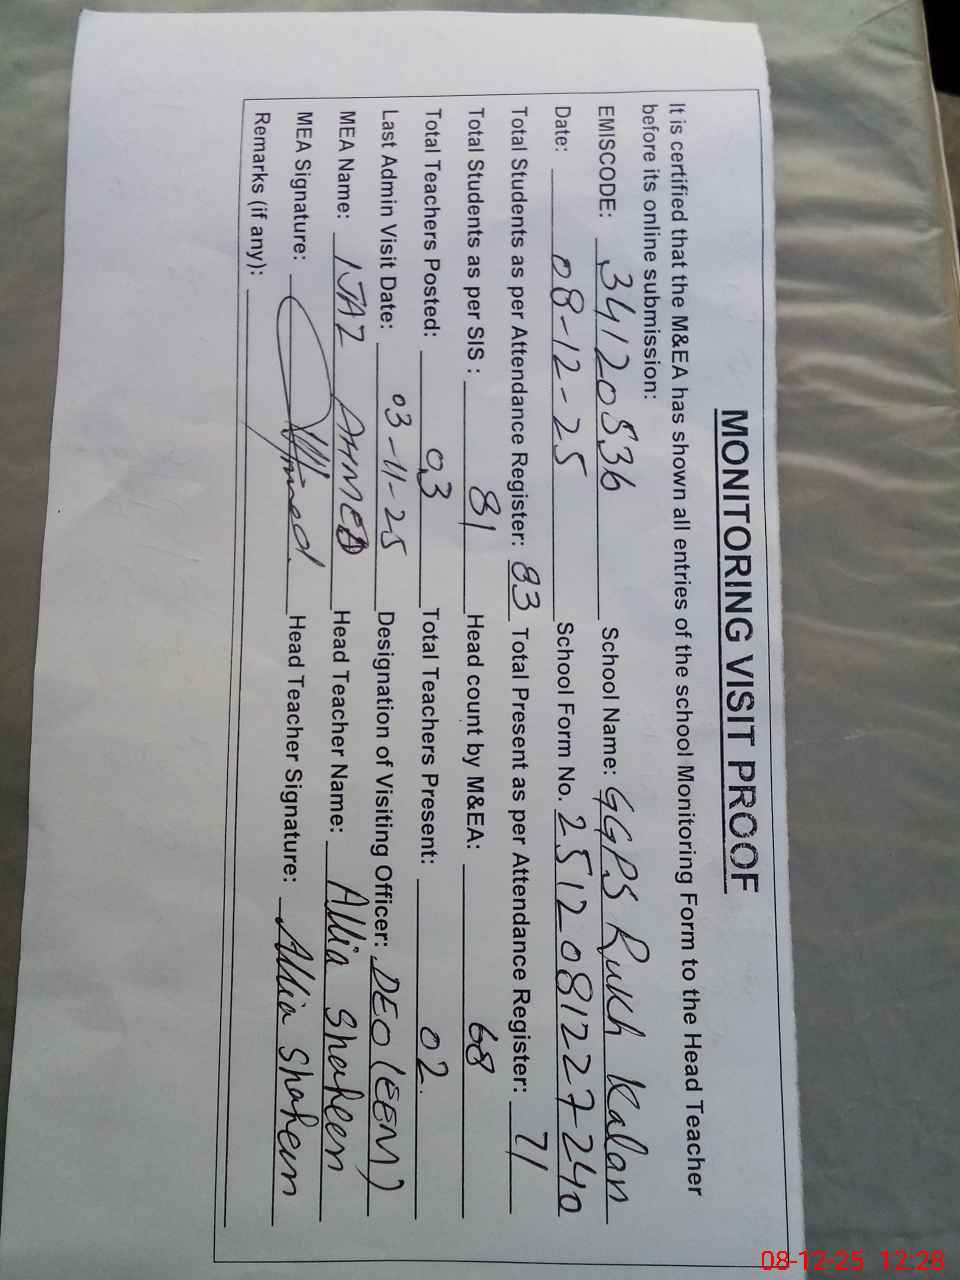 MONITORING VISIT PROOF
It is certified that the M&EA has shown all entries of the school Monitoring Form to the Head Teacher
before its online submission:
EMISCODE: 34120536 School Name: GGPS Rukh Kalan
Date: 08-12-25 School Form No. 2512081227240
Total Students as per Attendance Register: 83 Total Present as per Attendance Register: 71
Total Students as per SIS : 81 Head count by M&EA: 68
Total Teachers Posted: 03 Total Teachers Present: 02
Last Admin Visit Date: 03-11-25 Designation of Visiting Officer: DEO (EEM)
MEA Name: IJAZ AHMED Head Teacher Name: Allia Shaheen
MEA Signature: Ahmed. Head Teacher Signature: Allia Shaheen
Remarks (if any):
08-12-25 12:28